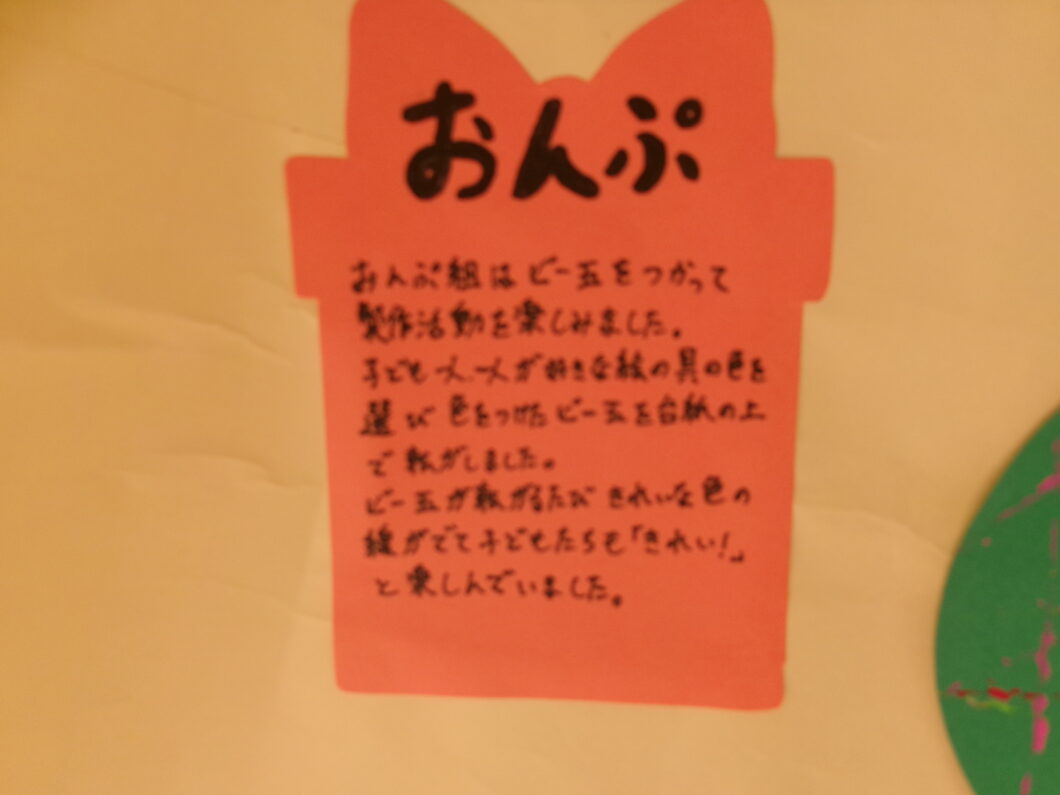 おんぷ
おんぷ組はビー玉をつかって
製作活動を楽しみました。
子ども一人一人が好きな絵の具の色を
選び色をつけたビー玉を台紙の上
で転がしました。
ビー玉が転がるたびきれいな色の
線がでて子どもたちも「きれい!」
と楽しんでいました。